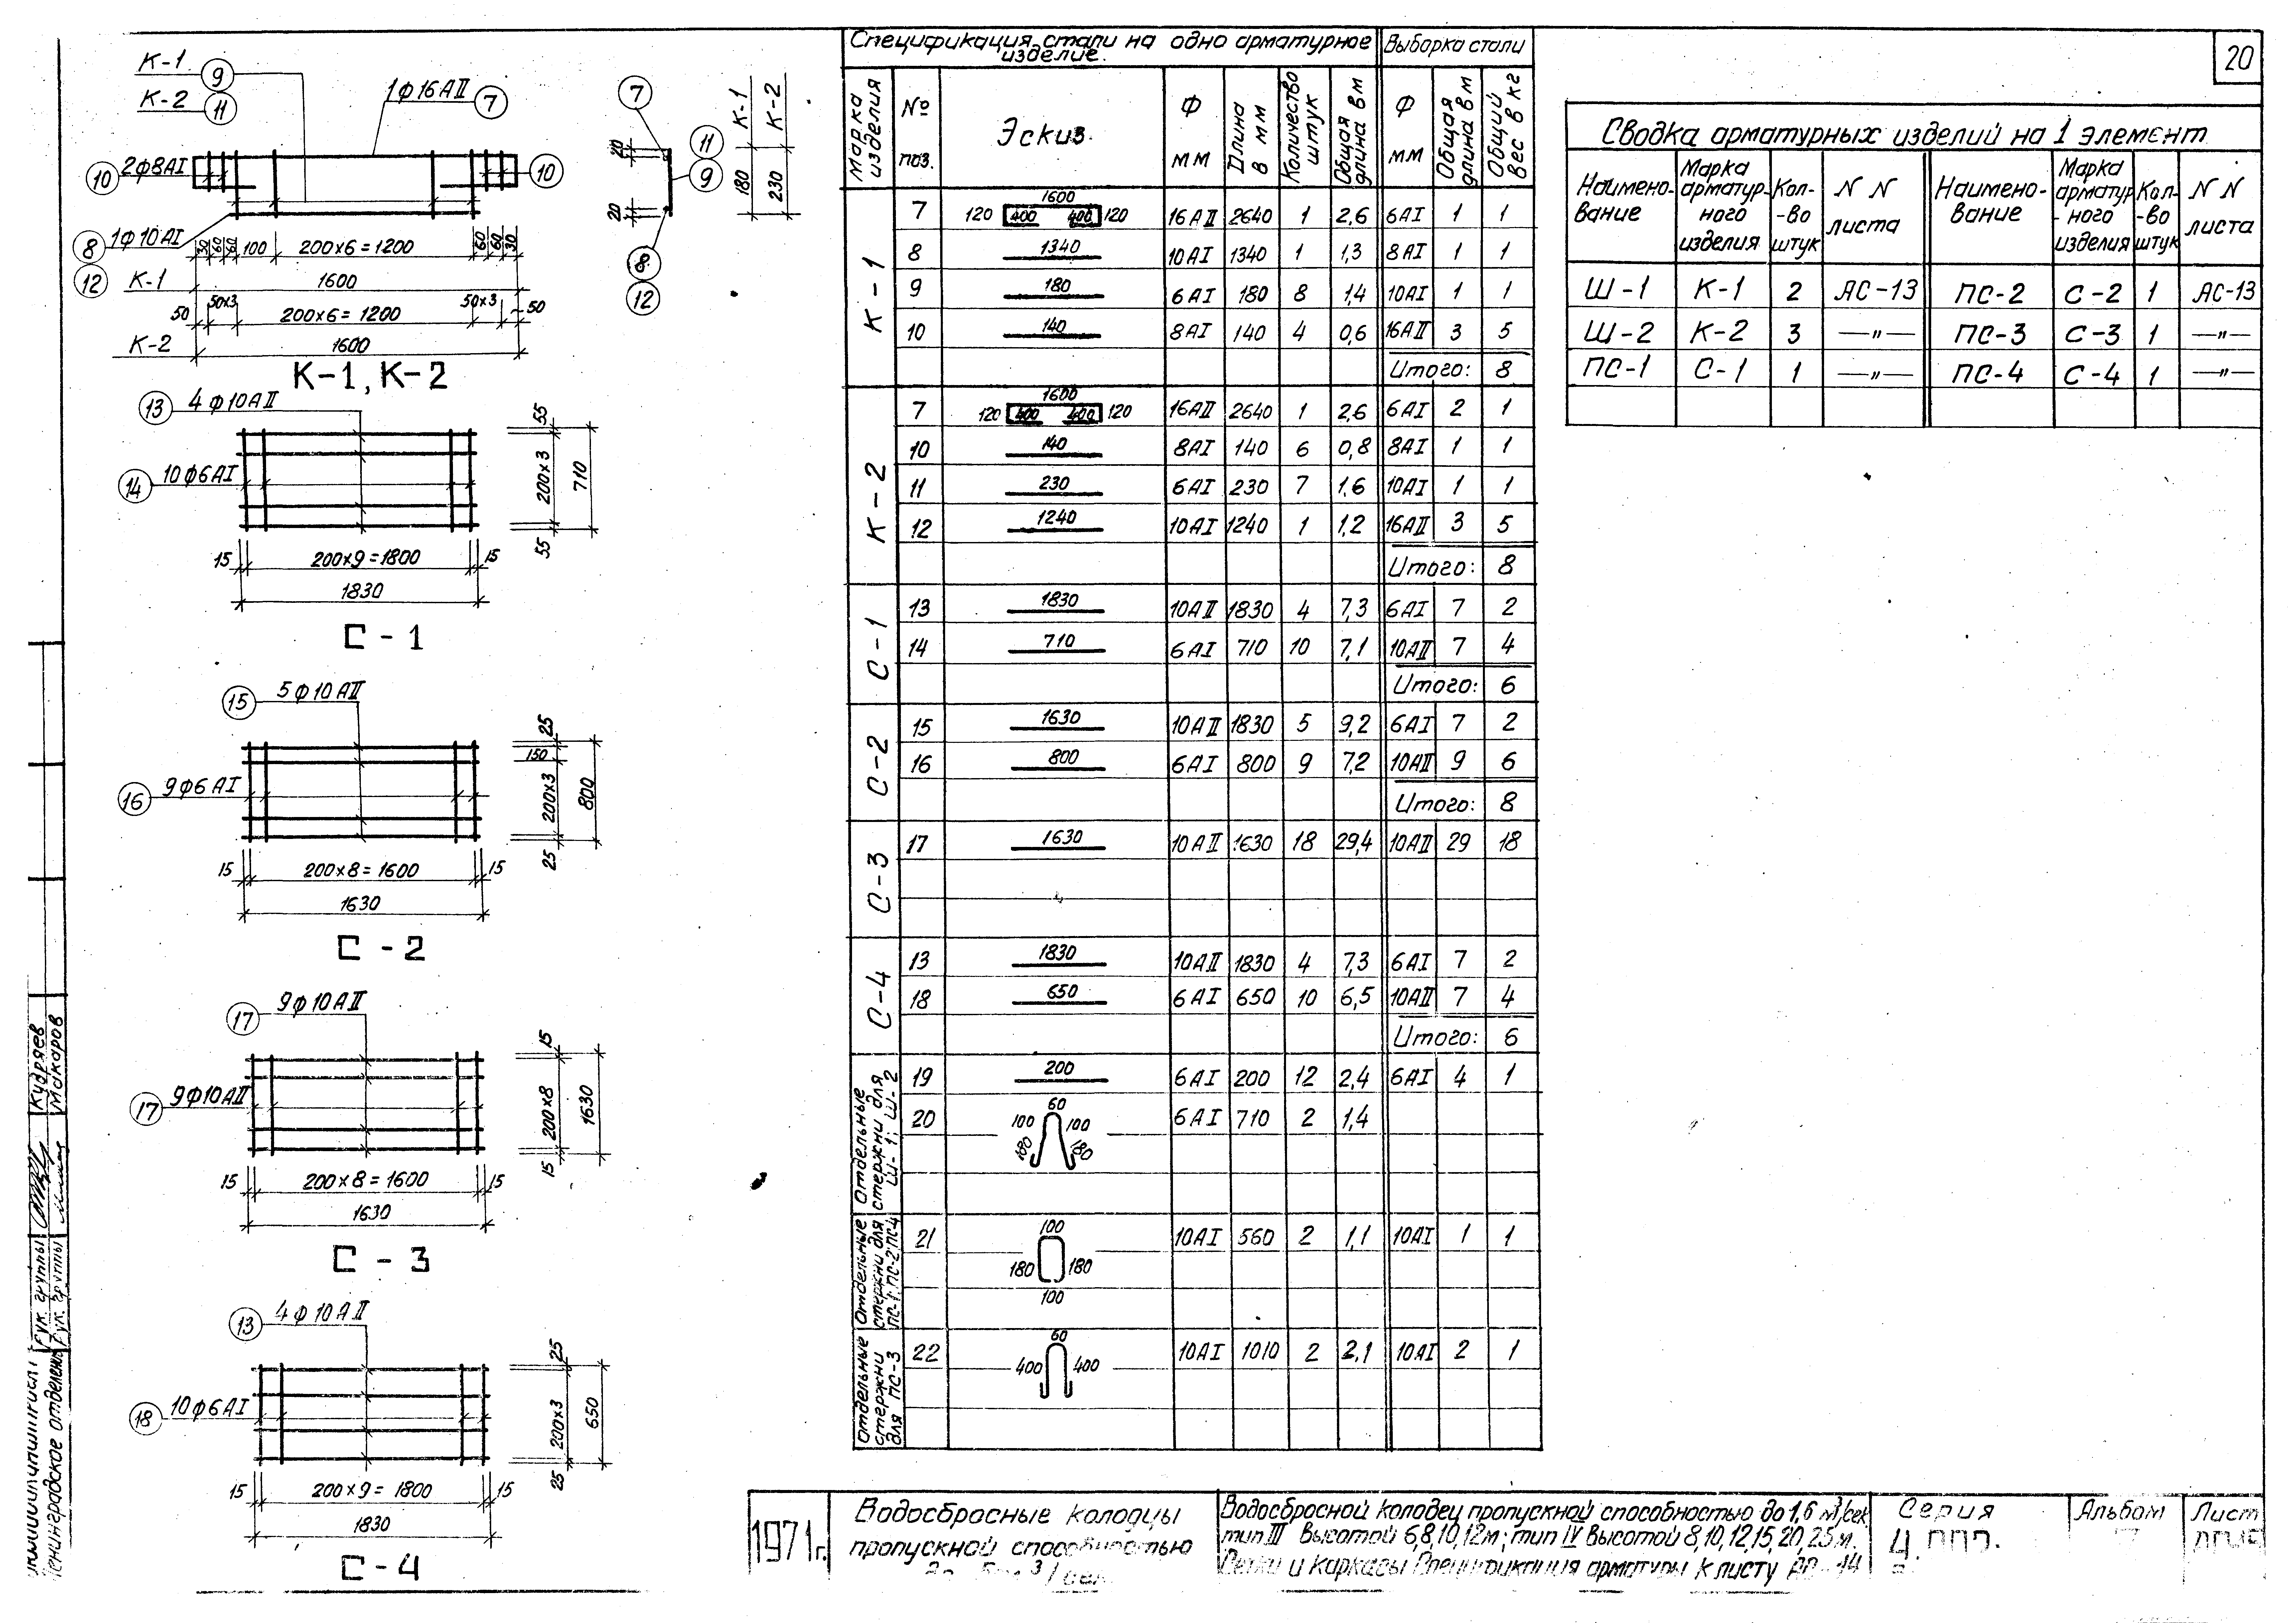 20
К-1
9
К-2
11
1ф16АII 7
10 2ф8АI
10
8 1ф10АI
12
30 60 60 100 200х6=1200 60 60 30
К-1 1600
50 50х3 200х6=1200 50х3 50
К-2 1600
К-1, К-2
7
20
11
9
20
8
12
К-1 К-2
180 230
13 4ф10АII
14 10ф6АI
55
200х3 710
55
15 200х9=1800 15
1830
С-1
15 5ф10АII
16 9ф6АI
25
150
200х3 800
25
15 200х8=1600 15
1630
С-2
17 9ф10АII
17 9ф10АII
15
200х8 1630
15
15 200х8=1600 15
1630
С-3
13 4ф10АII
18 10ф6АI
25
200х3 650
25
15 200х9=1800 15
1830
С-4
Спецификация стали на одно арматурное изделие. Выборка стали
Марка изделия № поз. Эскиз. Ф мм Длина в мм Количество штук Общая длина в м Ф мм Общая длина в м Общий вес в кг
К-1
7 120 1600 400 400 120 16АII 2640 1 2,6 6АI 1 1
8 1340 10АI 1340 1 1,3 8АI 1 1
9 180 6АI 180 8 1,4 10АI 1 1
10 140 8АI 140 4 0,6 16АII 3 5
Итого: 8
К-2
7 120 1600 400 400 120 16АII 2640 1 2,6 6АI 2 1
10 140 8АI 140 6 0,8 8АI 1 1
11 230 6АI 230 7 1,6 10АI 1 1
12 1240 10АI 1240 1 1,2 16АII 3 5
Итого: 8
С-1
13 1830 10АII 1830 4 7,3 6АI 7 2
14 710 6АI 710 10 7,1 10АII 7 4
Итого: 6
С-2
15 1630 10АII 1830 5 9,2 6АI 7 2
16 800 6АI 800 9 7,2 10АII 9 6
Итого: 8
С-3
17 1630 10АII 1630 18 29,4 10АII 29 18
С-4
13 1830 10АII 1830 4 7,3 6АI 7 2
18 650 6АI 650 10 6,5 10АII 7 4
Итого: 6
Отдельные стержни для Ш-1; Ш-2
19 200 6АI 200 12 2,4 6АI 4 1
20 60 100 100 180 180 6АI 710 2 1,4
Отдельные стержни для ПС-1; ПС-2; ПС-4
21 100 180 180 100 10АI 560 2 1,1 10АI 1 1
Отдельные стержни для ПС-3
22 60 400 400 10АI 1010 2 2,1 10АI 2 1
Сводка арматурных изделий на 1 элемент
Наимено-вание Марка арматур-ного изделия Кол-во штук N N листа Наимено-вание Марка арматур-ного изделия Кол-во штук N N листа
Ш-1 К-1 2 АС-13 ПС-2 С-2 1 АС-13
Ш-2 К-2 3 —"— ПС-3 С-3 1 —"—
ПС-1 С-1 1 —"— ПС-4 С-4 1 —"—
Кудряев
Макаров
Рук. группы
Рук. группы
Ленинградское отделение
1971г.
Водосбросные колодцы
пропускной способностью
Водосбросной колодец пропускной способностью до 1,6 м³/сек
тип III высотой 6,8,10,12м; тип IV высотой 8,10,12,15,20,25м.
Сетки и каркасы Спецификация арматуры к листу
Серия
Альбом
Лист